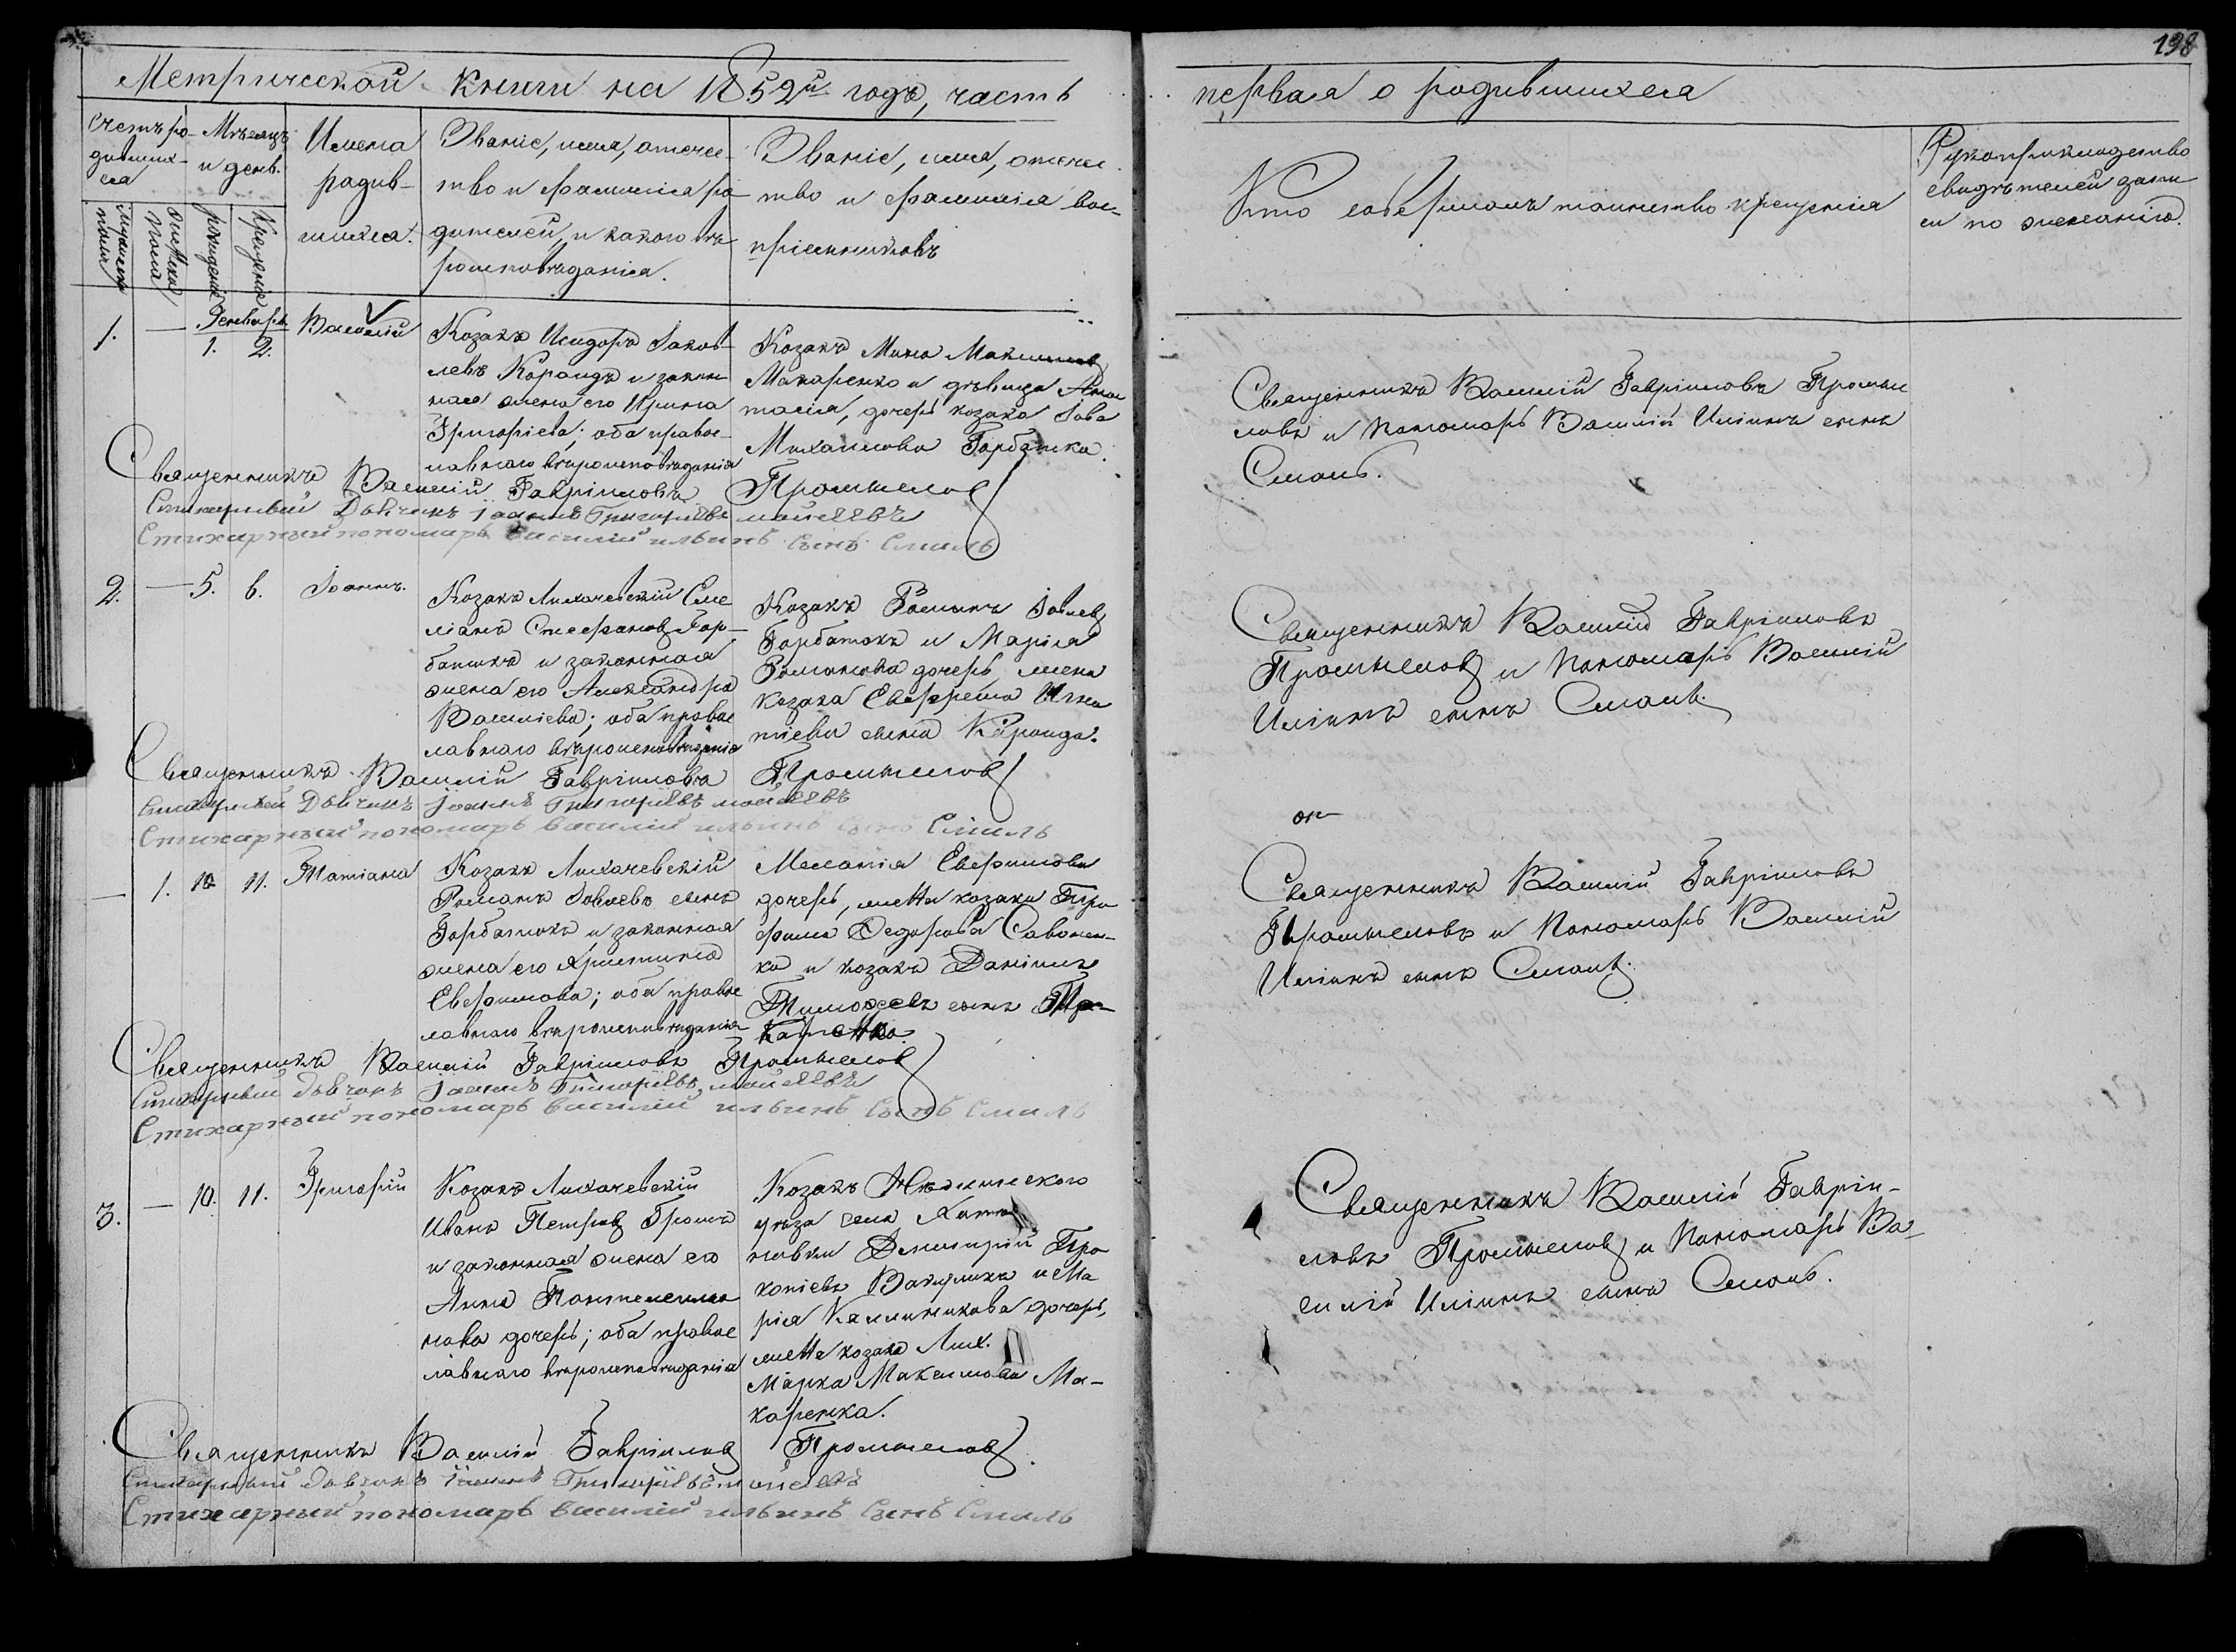 198
Метрической книги на 1852й годъ, часть
первая о родившихся
Счетъ ро-
дивших-
ся
Мѣсяцъ
и день.
Имена
родив-
шихся.
Званіе, имя, отечес-
тво и фамилія ро-
дителей, и какого вѣ-
роисповѣданія.
Званіе, имя, отечес-
тво и фамилія вос-
пріемниковъ
Кто совершалъ таинство крещенія
Рукоприкладство
свидѣтелей запи-
си по желанію.
Мужеска
пола
Женска
пола
рожденія
Крещенія
Генварь
1. — 1. 2. Василій
Козакъ Исидоръ Іаков-
левъ Кораидъ и закон-
ная жена его Ирина
Григоріева; оба правос-
лавнаго вѣроисповѣданія
Козакъ Мина Максимов
Макаренко и дѣвица Анас
тасія, дочерь козака Іова
Михаилова Горбатка.
Священникъ Василій Гавріиловъ Промыс
ловъ и Пономарь Василій Иліинъ сынъ
Смаль.
Священникъ Василій Гавріиловъ Промыслов
Стихарный Дьячокъ Іоаннъ Григоріевъ Моисеевъ
Стихарный пономарь Василий ильинъ Сынъ Смаль
2. — 5. 6. Іоаннъ.
Козакъ Лихачевскій Еме
ліанъ Стефанов Гор-
батокъ и законная
жена его Александра
Василіева; оба правос
лавнаго вѣроисповѣданія
Козакъ Романъ Іовлев
Горбатокъ и Марія
Романова дочерь жена
козака Евфрема Игна
тіева сына Кораида.
Священникъ Василій Гавріиловъ
Промыслов и Пономарь Василій
Иліинъ сынъ Смаль.
Священникъ Василій Гавріиловъ Промыслов
Стихарный Дьячокъ Іоаннъ Григоріевъ Моисеевъ
Стихарный пономарь Василий ильинъ Сынъ Смаль
— 1. 10 11. Татіана
Козакъ Лихачевскій
Романъ Іовлевъ сынъ
Горбатокъ и законная
жена его Христина
Евфимова; оба правос
лавнаго вѣроисповѣданія
Меланія Евфимова
дочерь, жена козака Тро
фима Федорова Савонен-
ка и козакъ Даніилъ
Тимофеевъ сынъ
Священникъ Василій Гавріиловъ
Промысловъ и Пономарь Василій
Иліинъ сынъ Смаль.
Священникъ Василій Гавріиловъ Промыслов
Стихарный дьячокъ Іоаннъ Григоріевъ Моисеевъ
Стихарный пономарь Василий ильинъ Сынъ Смаль
3. — 10. 11. Григорій
Козакъ Лихачевскій
Иванъ Петров Громъ
и законная жена его
Анна Пантелеимо
нова дочерь; оба правос
лавнаго вѣроисповѣданія
Козакъ Нѣжинского
уѣзда села
новки Димитрій Про
копіевъ и Ма
рія Каллиникова дочерь,
жена козака Лих.
Марка Максимова Ма-
каренка.
Священникъ Василій Гаврiи-
ловъ Промыслов и Пономарь Ва-
силій Иліинъ сынъ Смаль.
Священникъ Василій Гавріилов Промыслов
Стихарный дьячокъ Іоаннъ Григоріевъ Моисеевъ
Стихарный пономарь Василий ильинъ Сынъ Смаль